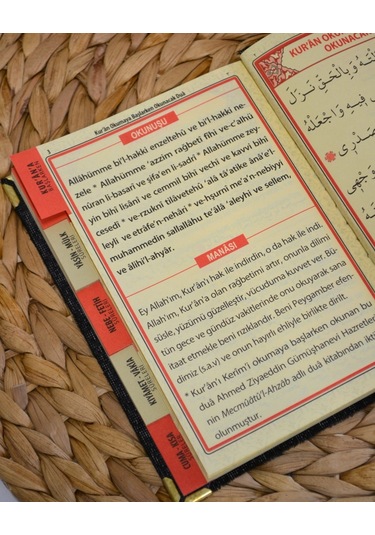 3
Kur'ân Okumaya Başlarken Okunacak Duâ
OKUNUŞU
Allâhümme bi'l-hakkı enzeltehû ve bi'l-hakkı ne-
zele * Allâhümme 'azzim rağbetî fîhi ve-c'alhü
nûran li-basarî ve şifâ'en li-sadrî * Allâhümme zey-
yin bihî lisânî ve cemmil bihî vechî ve kavvi bihî
cesedî * ve-rzuknî tilâvetehû 'alâ tâ'atike ânâ'e'l-
leyli ve etrâfe'n-nehâri * ve-hşurnî me'a'n-nebiyyi
muhammedin sallallâhü te'âlâ 'aleyhi ve sellem,
ve âlihi'l-ahyâr.
MANÂSI
Ey Allah'ım, Kur'ânı hak ile indirdin, o da hak ile indi.
Allah'ım, Kur'ân'a olan rağbetimi artır, onunla dilimi
süsle, yüzümü güzelleştir, vücuduma kuvvet ver. Bü-
tün gece ve gündüz vakitlerinde onu okuyarak sana
itaat etmekle beni rızıklandır. Beni Peygamber efen-
dimiz (s.a.v) ve onun hayırlı ehliyle birlikte dirilt.
* Kur'ân'ı Kerîm'i okumaya başlarken okunan bu
duâ Ahmed Ziyaeddin Gümüşhanevi Hazretleri-
nin Mecmûâtü'l-Ahzâb adlı duâ kitabından iktibas
olunmuştur.
KUR'ÂN'A
BAŞLARKEN
YASİN - MÜLK
SÛRELERİ
NEBE - FETİH
SÛRELERİ
KIYÂMET - VÂKIA
SÛRELERİ
CUMA - KISA
SÛRELER
KUR'ÂN OKU
OKUNACA